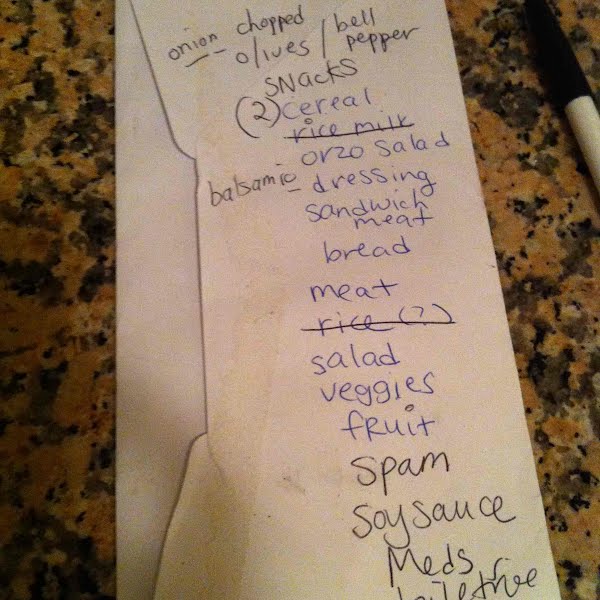 onion chopped
olives / bell pepper
SNacks
(2) cereal
rice milk
orzo salad
balsamic dressing
sandwich
meat
bread
meat
rice (?)
salad
veggies
fruit
spam
soysauce
Meds